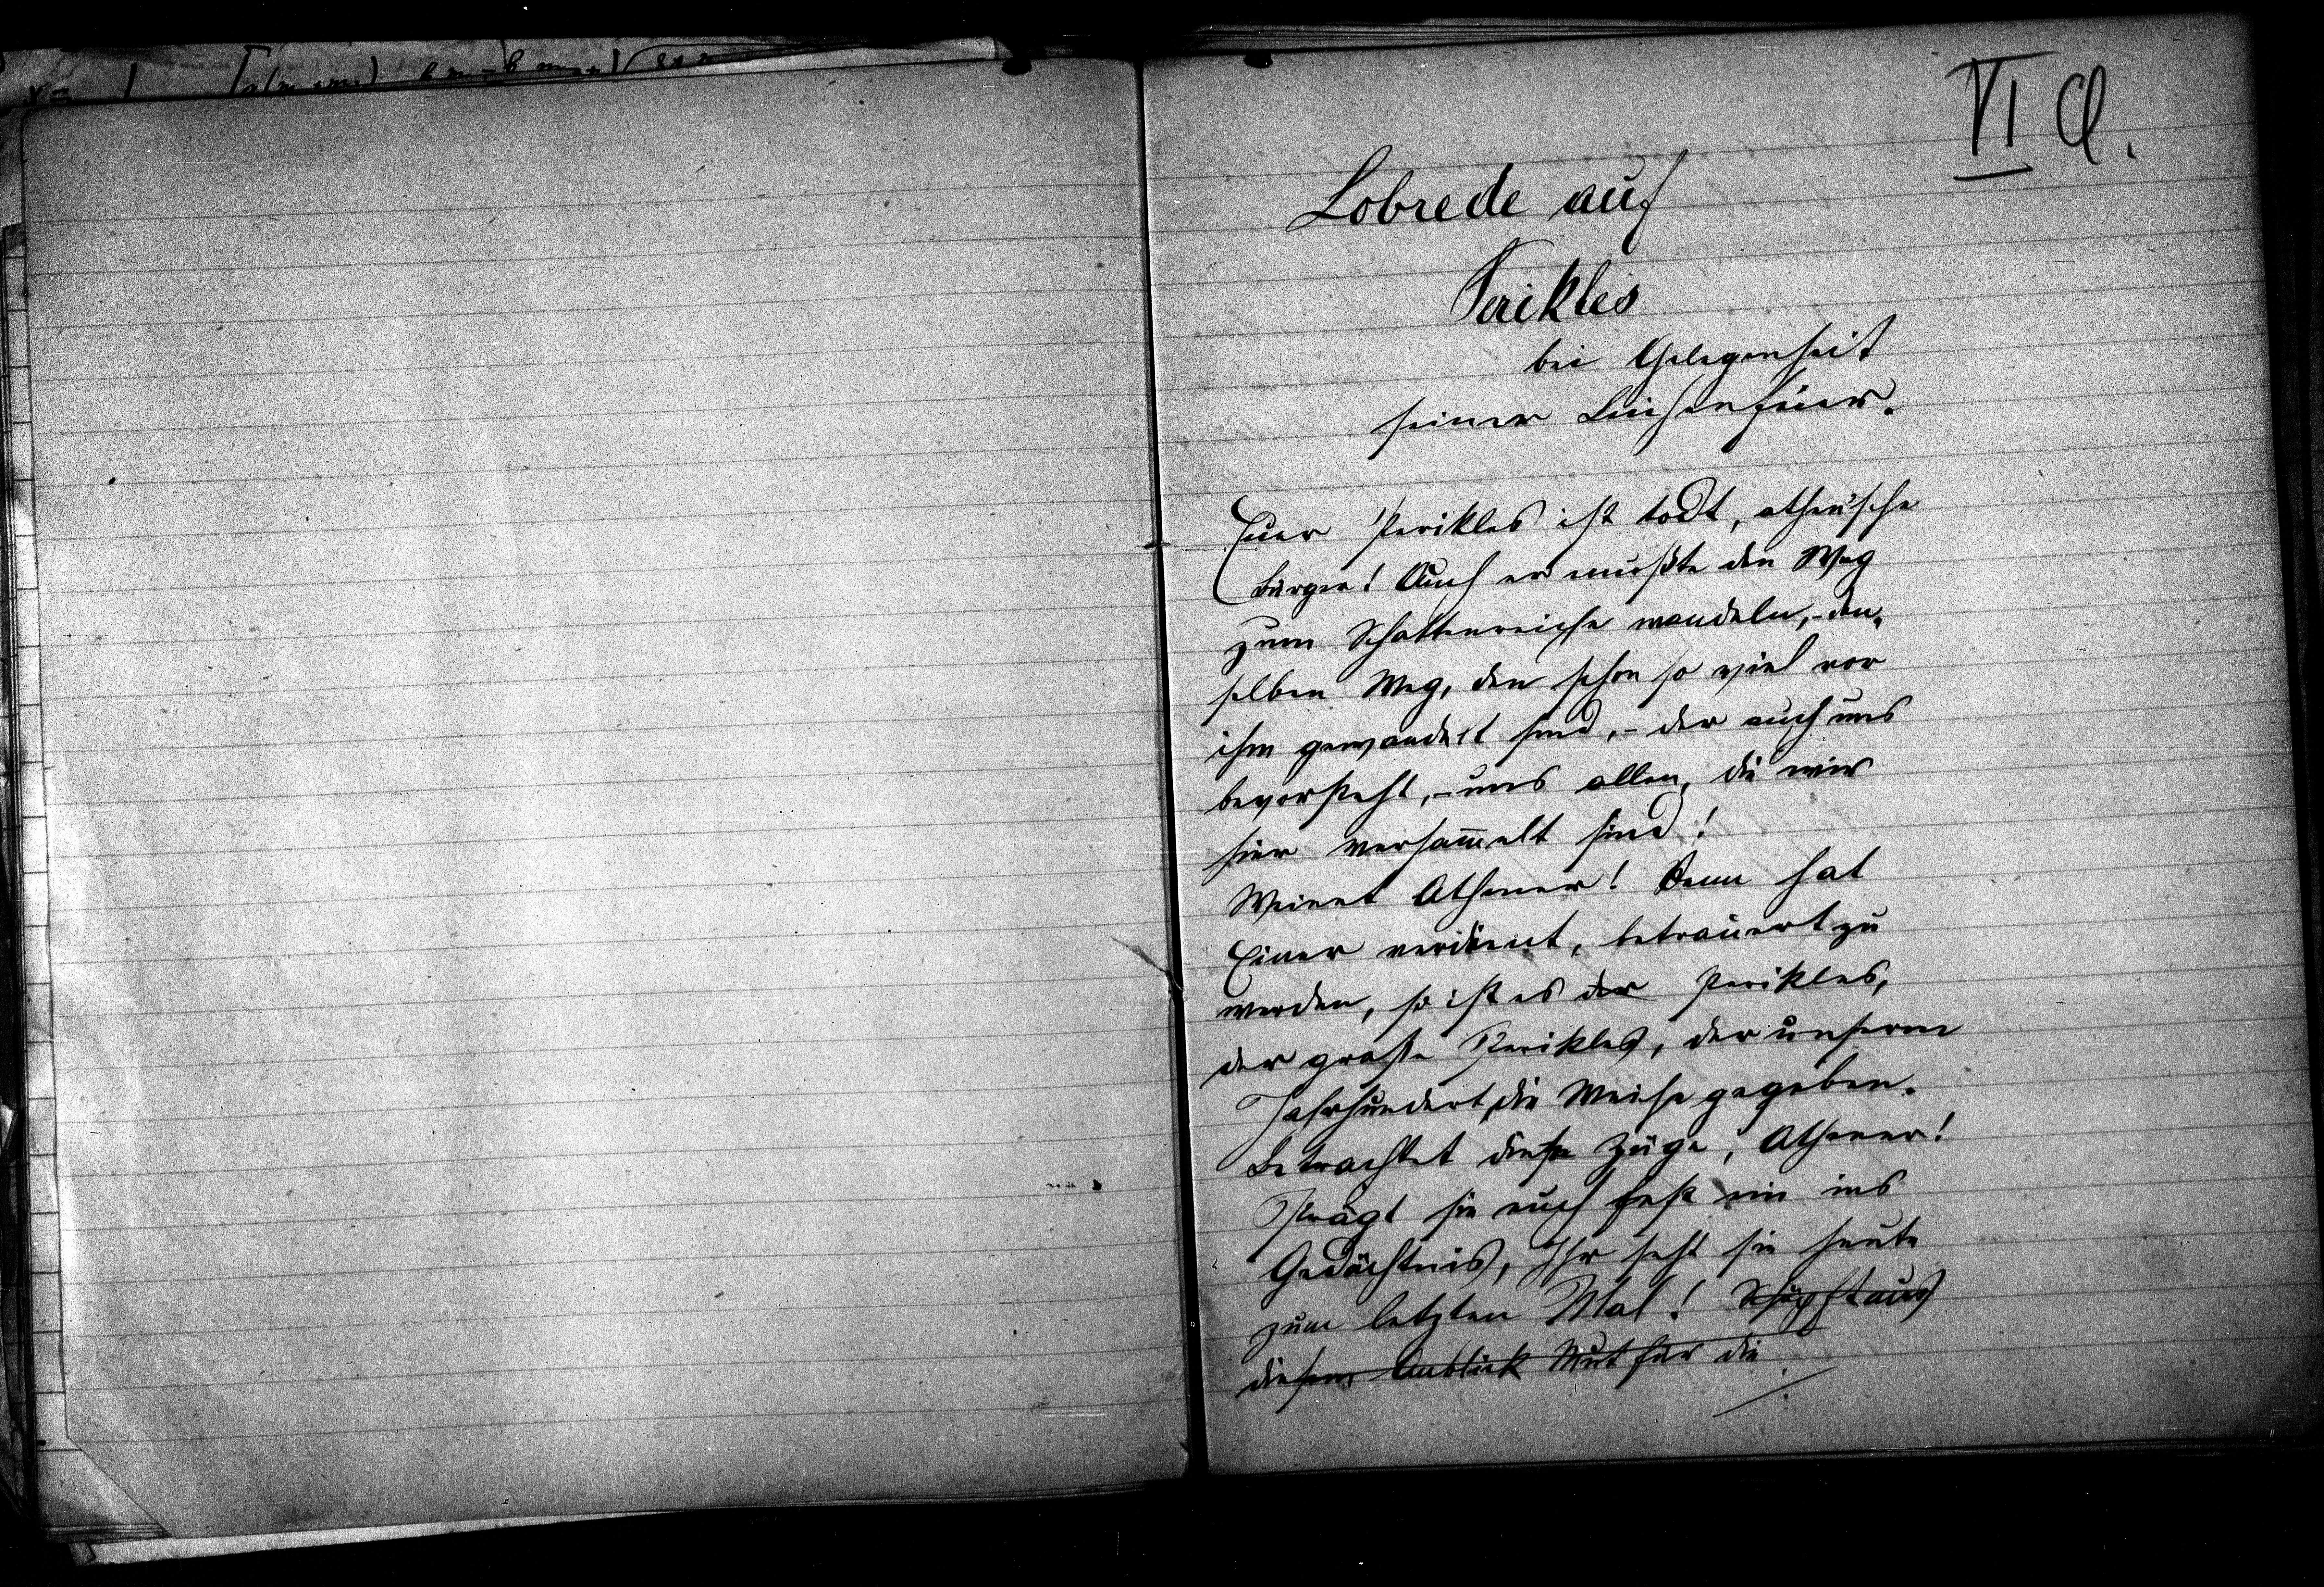 VI Cl.
Lobrede auf
Perikles
bei Gelegenheit
seiner Leichenfeier.
Euer Perikles ist todt, athen'sche
Bürger! Auch er mußte den Weg
zum Schattenreiche wandeln, - den-
selben Weg, den schon so viel vor
ihm gewandelt sind, - der auch uns
bevorsteht, - uns allen, die wir
hier versam̅elt sind!
Weinet Athener! Denn hat
Einer verdient, betrauert zu
werden, so ist es der Perikles,
der große Perikles, der unserm
Jahrhundert die Weihe gegeben.
Betrachtet diese Züge, Athener!
Prägt sie euch fest ein ins
Gedächtnis, Ihr seht sie heute
zum letzten Mal! Schöpft aus
diesem Anblick Mut für die